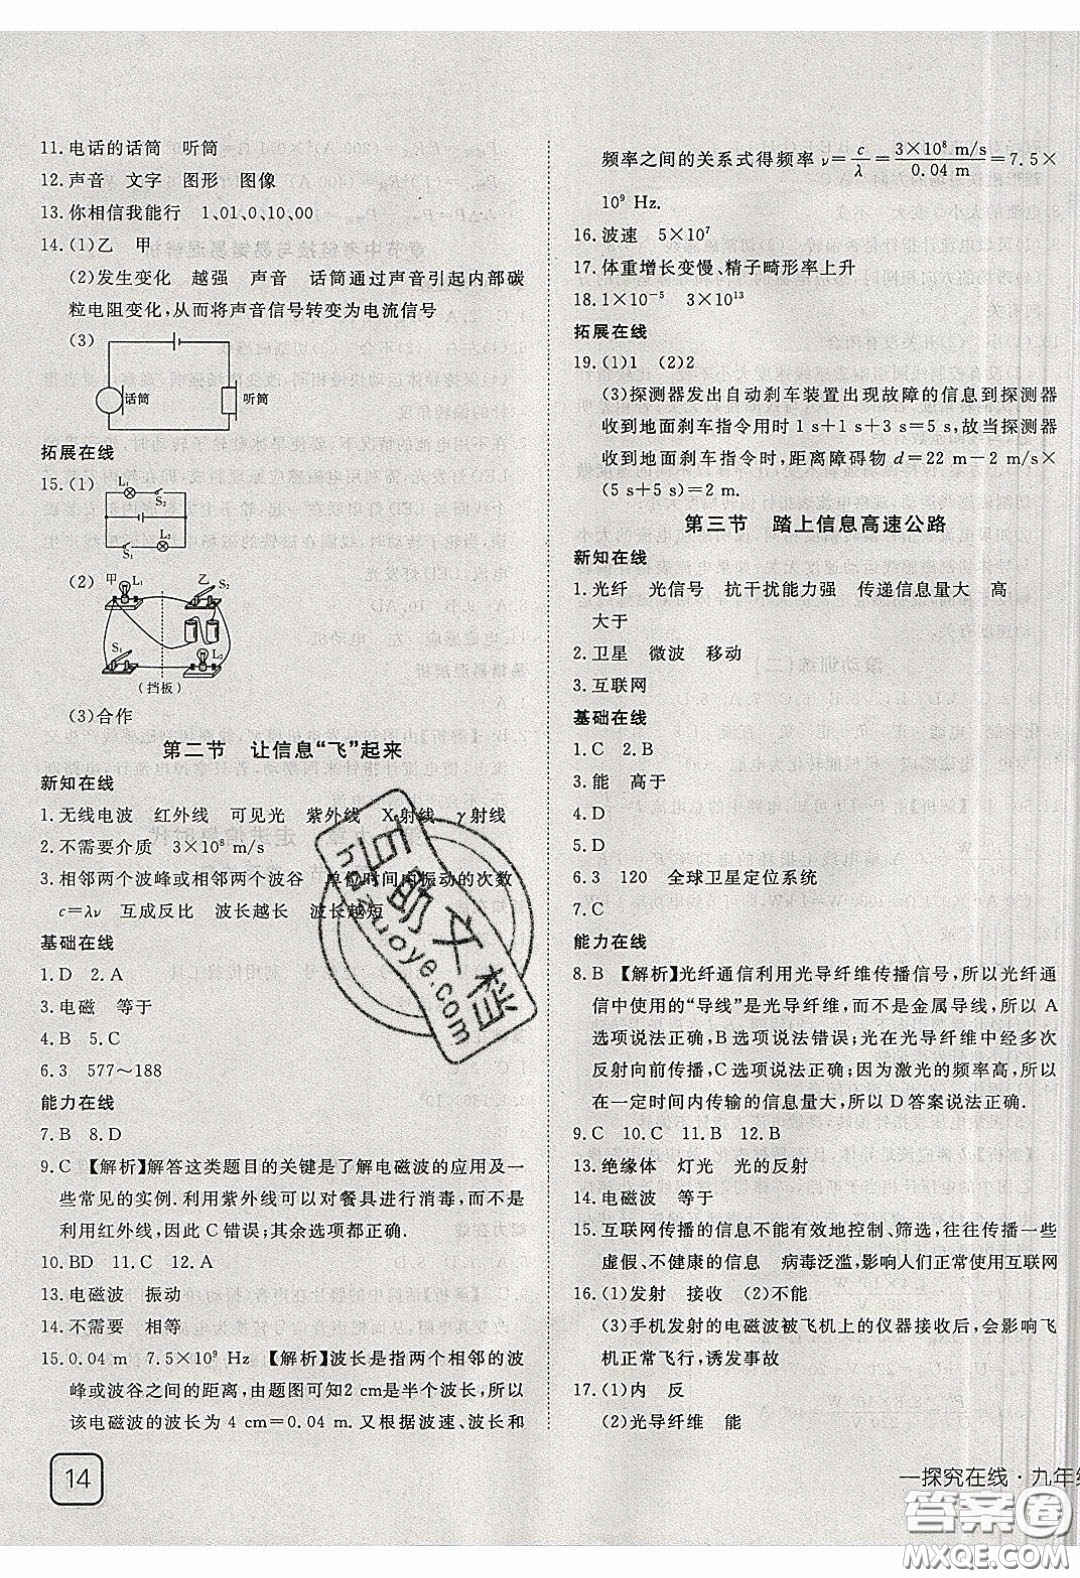 11.电话的话筒 听筒
12.声音 文字 图形 图像
13.你相信我能行 1、01、0、10、00
14.(1)乙 甲
(2)发生变化 越强 声音 话筒通过声音引起内部碳
粒电阻变化,从而将声音信号转变为电流信号
(3)
话筒
听筒
拓展在线
15.(1)
L₁
S₂
S₁
L₂
(2)
甲
L₁
乙
S₂
S₁
L₂
(挡板)
(3)合作
第二节 让信息“飞”起来
新知在线
1.无线电波 红外线 可见光 紫外线 X射线 γ射线
2.不需要介质 3×10⁸ m/s
3.相邻两个波峰或相邻两个波谷 单位时间内振动的次数
c=λν 互成反比 波长越长 波长越短
基础在线
1.D 2.A
3.电磁 等于
4.B 5.C
6.3 577～188
能力在线
7.B 8.D
9.C 【解析】解答这类题目的关键是了解电磁波的应用及一
些常见的实例.利用紫外线可以对餐具进行消毒,而不是
利用红外线,因此C错误;其余选项都正确.
10.BD 11.C 12.A
13.电磁波 振动
14.不需要 相等
15.0.04 m 7.5×10⁹ Hz 【解析】波长是指两个相邻的波
峰或波谷之间的距离,由题图可知2 cm是半个波长,所以
该电磁波的波长为4 cm=0.04 m.又根据波速、波长和
14
频率之间的关系式得频率ν=c/λ=3×10⁸ m/s/0.04 m=7.5×
10⁹ Hz.
16.波速 5×10⁷
17.体重增长变慢、精子畸形率上升
18.1×10⁻⁵ 3×10¹³
拓展在线
19.(1)1 (2)2
(3)探测器发出自动刹车装置出现故障的信息到探测器
收到地面刹车指令用时1 s+1 s+3 s=5 s,故当探测器
收到地面刹车指令时,距离障碍物d=22 m-2 m/s×
(5 s+5 s)=2 m.
第三节 踏上信息高速公路
新知在线
1.光纤 光信号 抗干扰能力强 传递信息量大 高
大于
2.卫星 微波 移动
3.互联网
基础在线
1.C 2.B
3.能 高于
4.D
5.D
6.3 120 全球卫星定位系统
7.C
能力在线
8.B 【解析】光纤通信利用光导纤维传播信号,所以光纤通
信中使用的“导线”是光导纤维,而不是金属导线,所以A
选项说法正确,B选项说法错误;光在光导纤维中经多次
反射向前传播,C选项说法正确;因为激光的频率高,所
以在一定时间内传输的信息量大,所以D答案说法正确.
9.C 10.C 11.B 12.B
13.绝缘体 灯光 光的反射
14.电磁波 等于
15.互联网传播的信息不能有效地控制、筛选,往往传播一些
虚假、不健康的信息 病毒泛滥,影响人们正常使用互联网
16.(1)发射 接收 (2)不能
(3)手机发射的电磁波被飞机上的仪器接收后,会影响飞
机正常飞行,诱发事故
17.(1)内 反
(2)光导纤维 能
一探究在线·九年级
答案圈
MXQE.COM
百助文档
hbzuoye.com